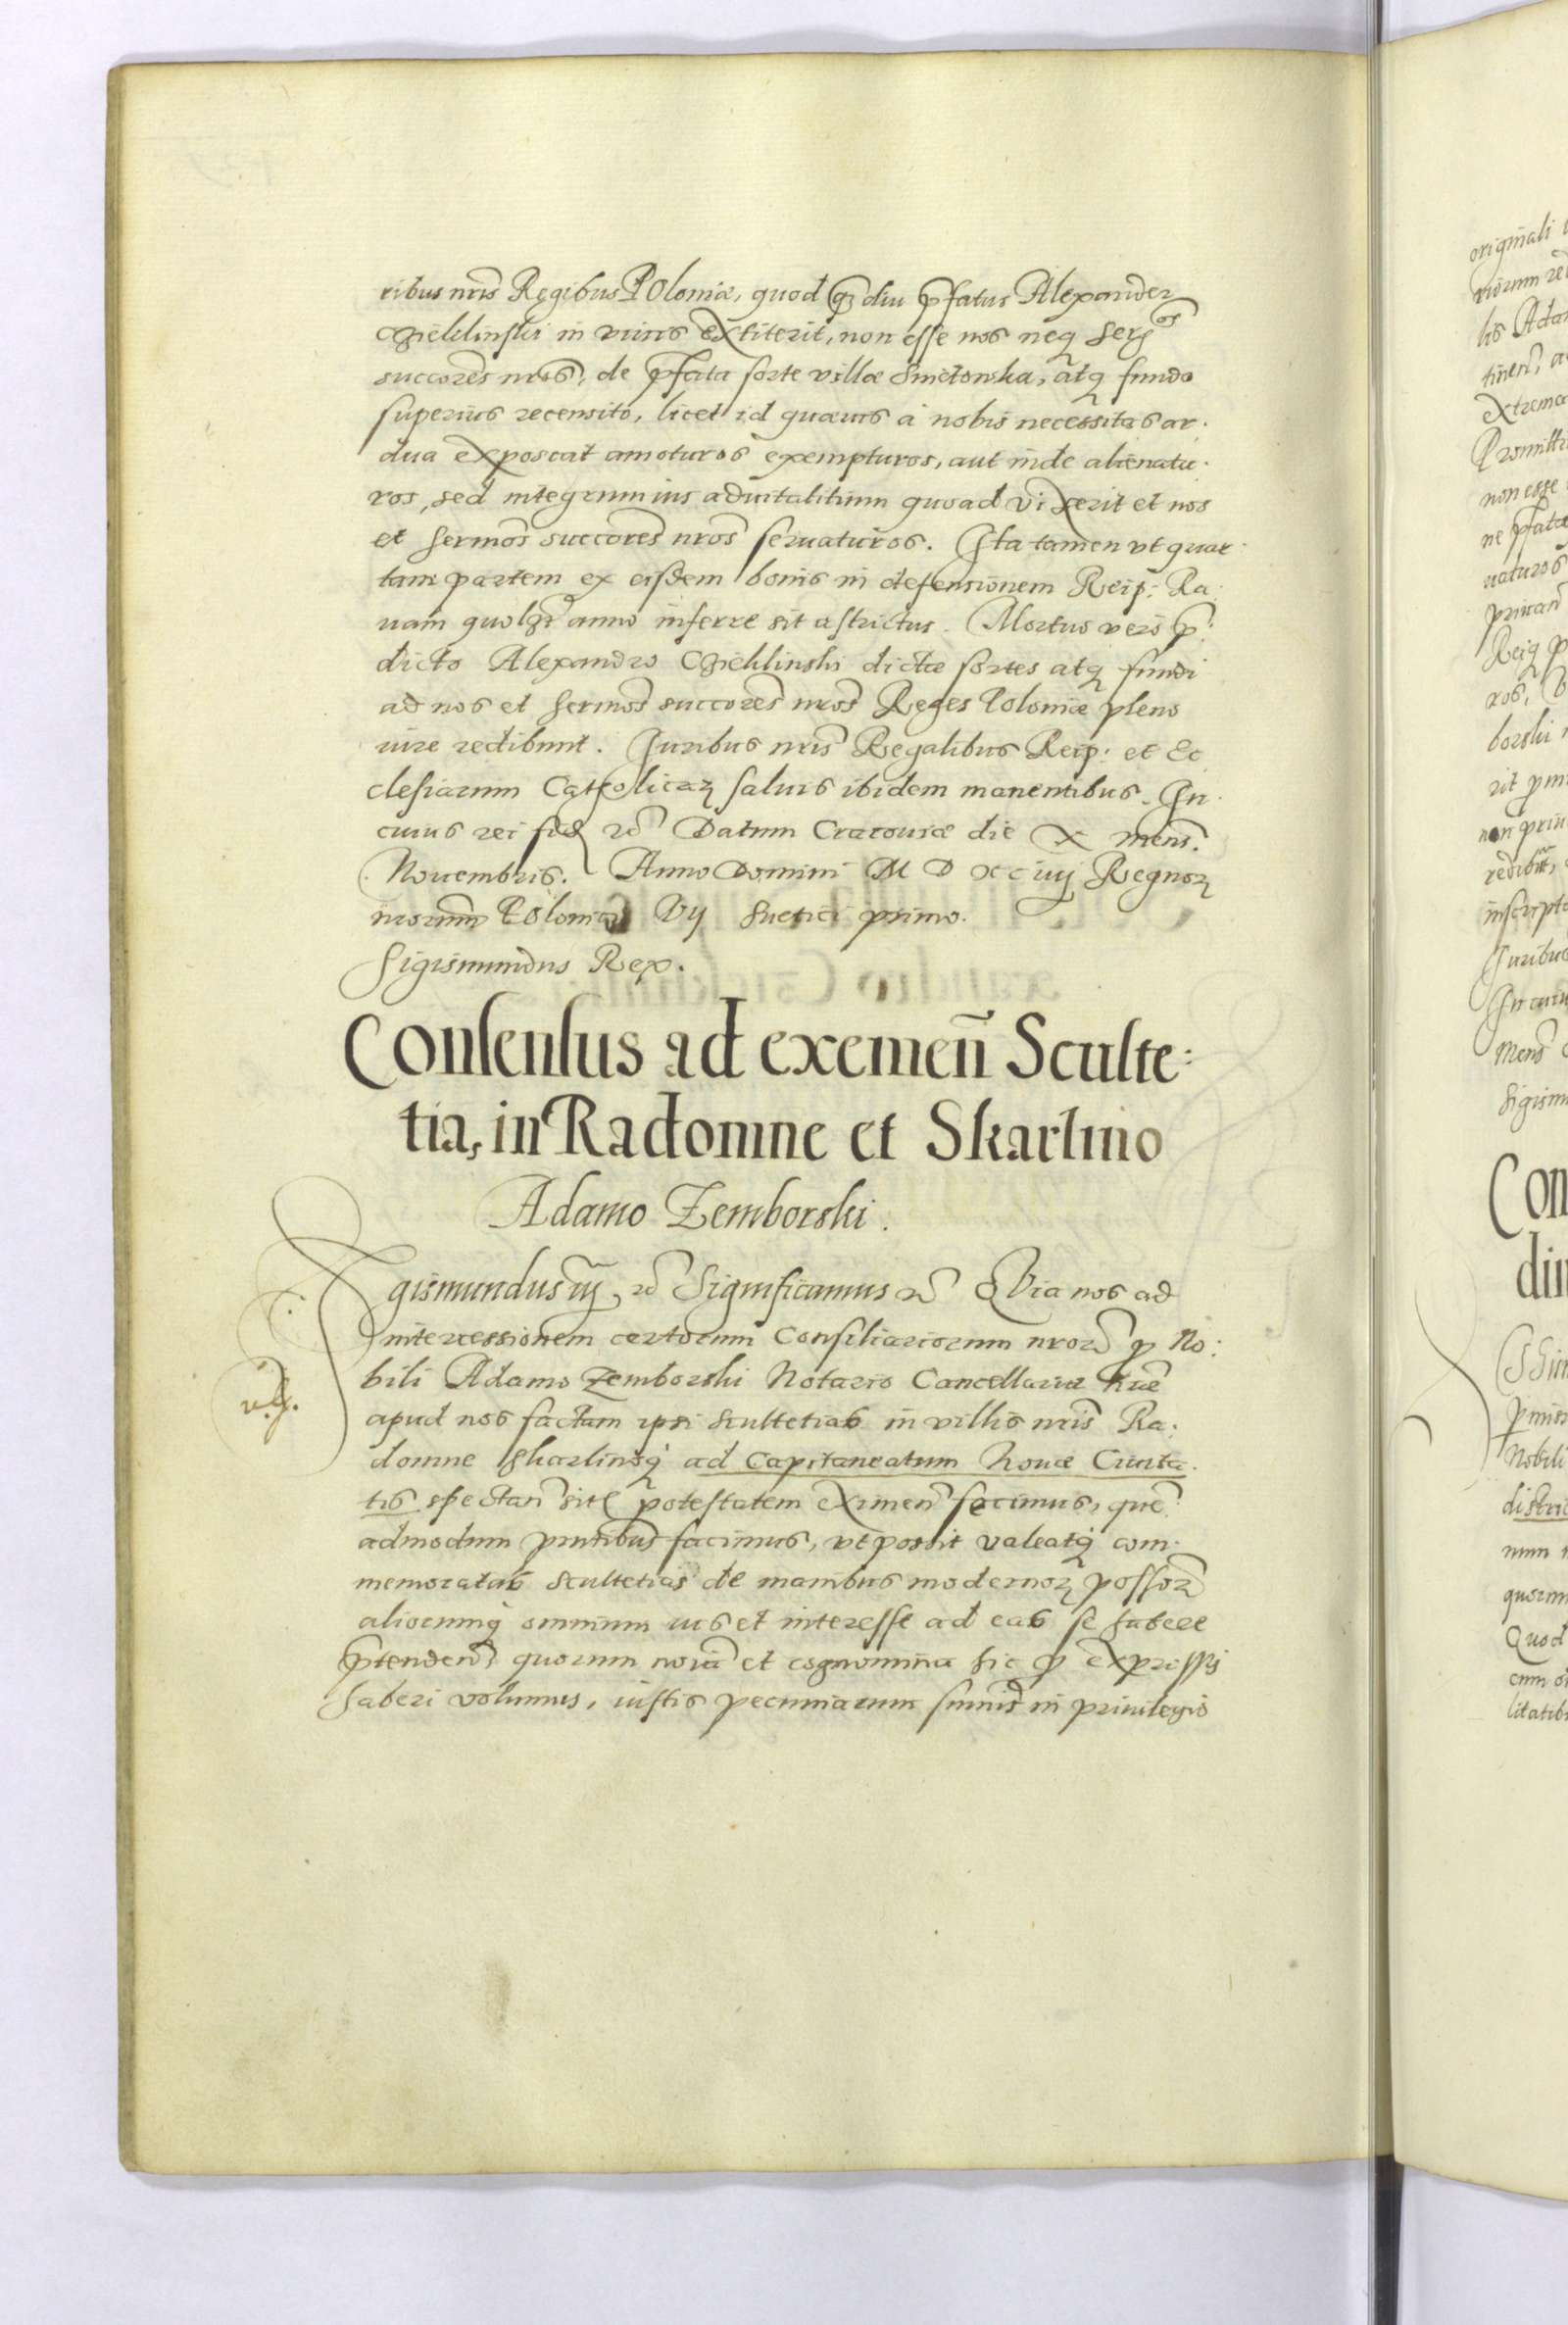 ribus nris Regibus Poloniæ, quod q̃diu p̃fatus Alexander
Chieklinski in viuis extiterit, non esse nos neq̃ Ser̃os
succores nros, de p̃fata sorte villæ Smictonska, atq̃ fundo
superius recensito, licet id quæuis à nobis necessitas ar-
dua exposcat amoturos exempturos, aut inde alienatu-
ros, sed integrum ius aduitalitium quoad vixerit et nos
et Sermos succores nros seruaturos. Ita tamen vt quar-
tam partem ex eisdem bonis in defensionem Reip: Ra-
uam quolibet anno inferre sit astrictus. Mortuo verò p̃-
dicto Alexandro Chieklinski dictæ sortes atq̃ fundi
ad nos et Sermos succores nros Reges Poloniæ pleno
iure redibunt. Juribus nris Regalibus Reip: et Ec-
clesiarum Catholicaz saluis ibidem manentibus. In
cuius rei fid. &c. Datum Cracouiæ die X mens.
Nouembris. Anno Domini M D XCiiij Regnoz
nrorum Poloniæ Vij Suetici primo.
Sigismundus Rex.
Consensus ad eximeñ Sculte:
tia, in Radomne et Skarlino
Adamo Zemborski.
Sigismundus iij. &c. Significamus &c. Quia nos ad
intercessionem certorum Consiliariorum nror̃ p̃ No:
bili Adamo Zemborski Notario Cancellariæ nr̃e
apud nos factam ipsi scultetias in villis nris Ra:
domne Skarlinoq̃ ad Capitaneatum Nouæ Ciuita-
tis spectan̄ sit. potestatem eximen̄ facimus, que-
admodum pntibus facimus, vt possit valeatq̃ com-
memoratas scultetias de manibus modernoz possor̃
aliorumq̃ omnium ius et interesse ad eas se habere
p̃tenden̄, quorum noĩa et cognomina hic p̃ expressis
haberi volumus, iustis pecuniarum summis in priuilegio